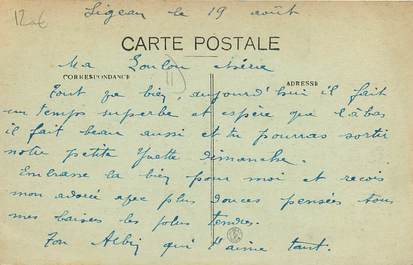 12€
Sigean le 19 août
CARTE POSTALE
Ma Loulou chérie
CORRESPONDANCE
ADRESSE
Tout va bien, aujourd'hui il fait
un temps superbe et espère que là bas
il fait beau aussi et tu pourras sortir
notre petite Yvette dimanche.
Embrasse la bien pour moi et reçois
mon adorée avec plus douces pensées tous
mes baises les plus tendres.
Ton Albin qui t'aime tant.